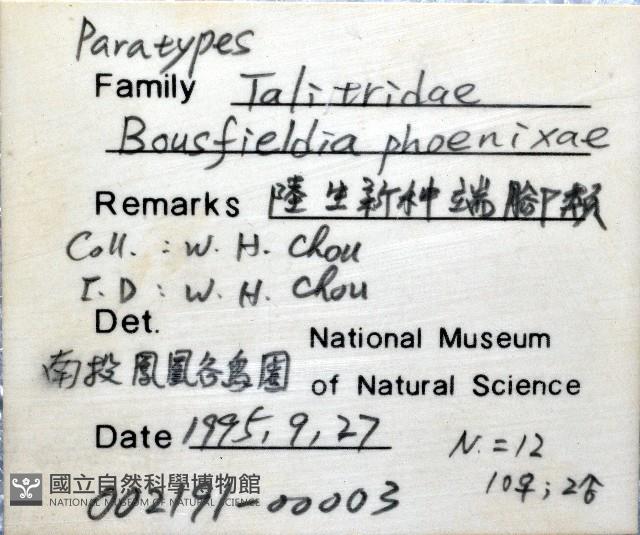 Paratypes
Family Talitridae
Bousfieldia phoenixae
Remarks 陸生新种端腳類
Coll. : W. H. Chou
I.D : W. H. Chou
Det.
National Museum
南投鳳凰谷鳥園 of Natural Science
Date 1995, 9, 27
N. = 12
10♀; 2♂
國立自然科學博物館
NATIONAL MUSEUM OF NATURAL SCIENCE
002191-00003